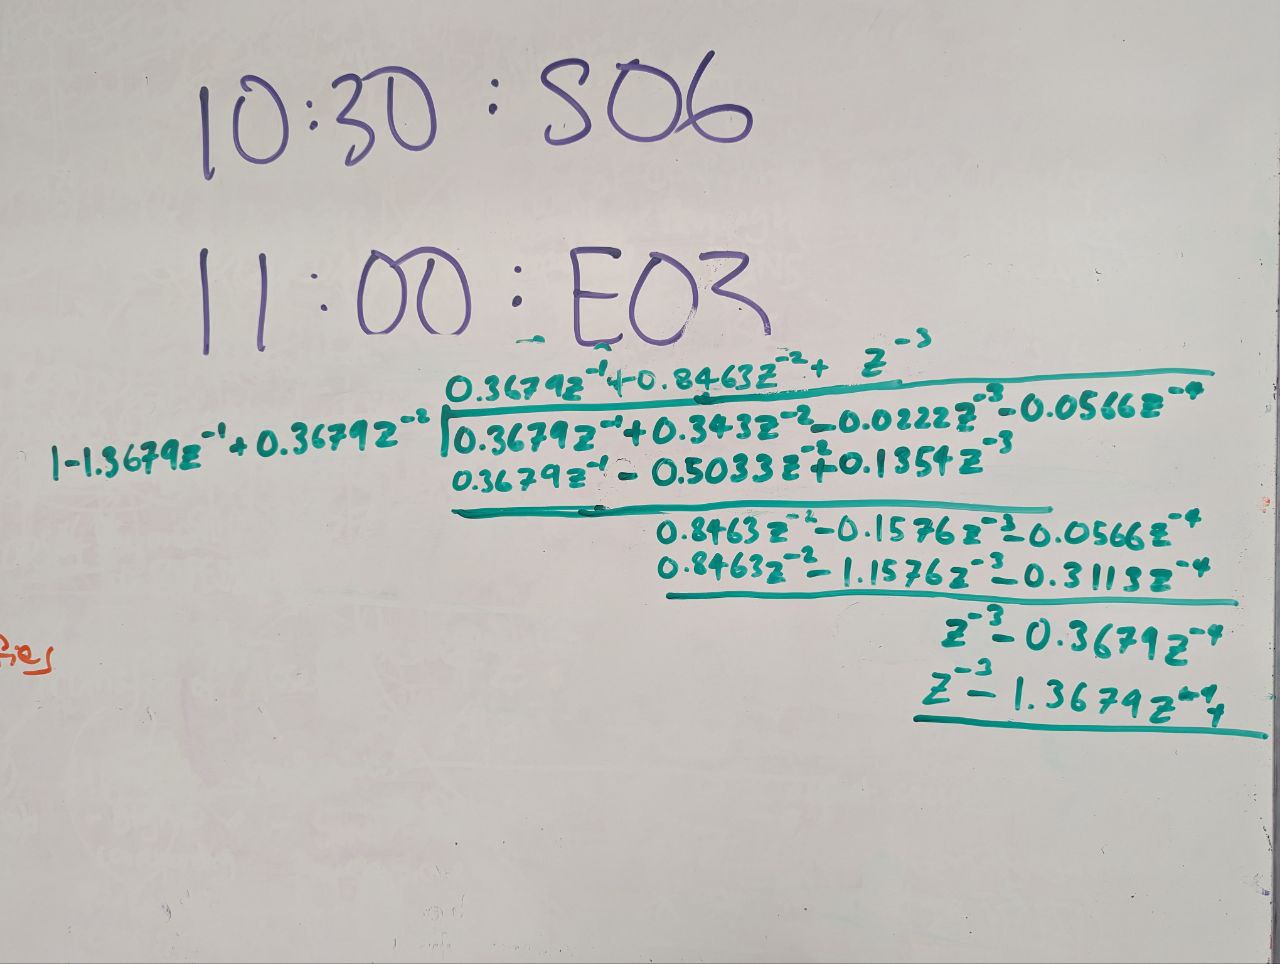 10:30 : S06
11:00 : E03
0.3679z⁻¹+0.8463z⁻²+ z⁻³
1-1.3679z⁻¹+0.3679z⁻² 0.3679z⁻¹+0.343z⁻²-0.0222z⁻³-0.0566z⁻⁴
0.3679z⁻¹-0.5033z⁻²+0.1354z⁻³
0.8463z⁻²-0.1576z⁻³-0.0566z⁻⁴
0.8463z⁻²-1.1576z⁻³-0.3113z⁻⁴
z⁻³-0.3679z⁻⁴
z⁻³-1.3679z⁻⁴+